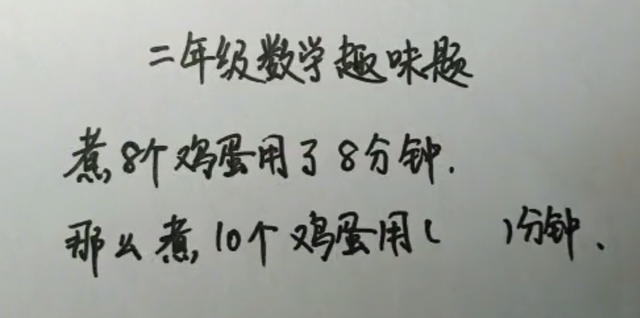 二年级数学趣味题
煮8个鸡蛋用了8分钟.
那么煮10个鸡蛋用( )分钟.